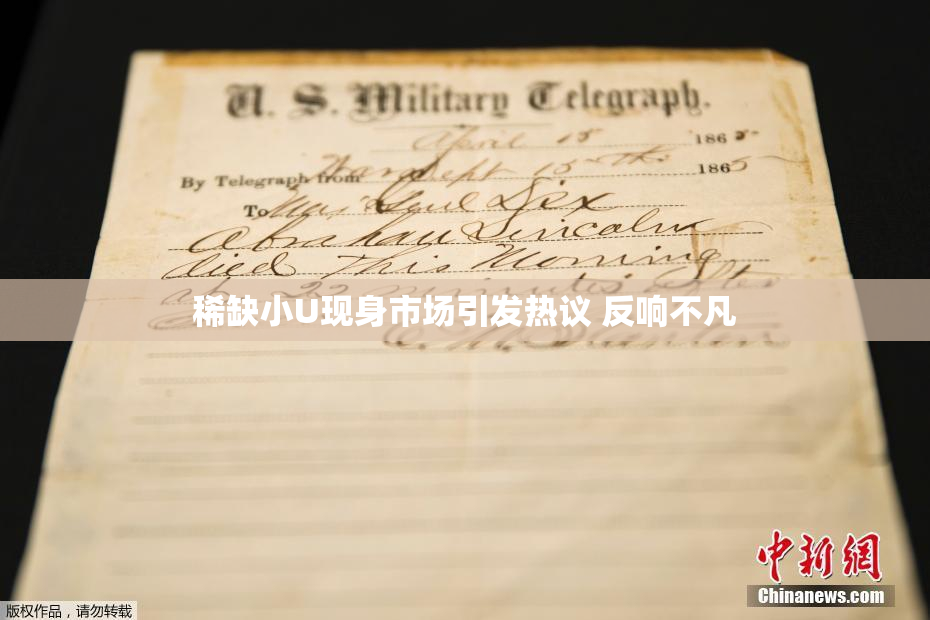 U. S. Military Telegraph.
April 15 1865
By Telegraph from War Dept 15th 1865
To Maj Genl Dix
Abraham Lincoln
died This Morning
at 22 minutes after
稀缺小U现身市场引发热议 反响不凡
E. M. Stanton
中新網
Chinanews.com
版权作品，请勿转载